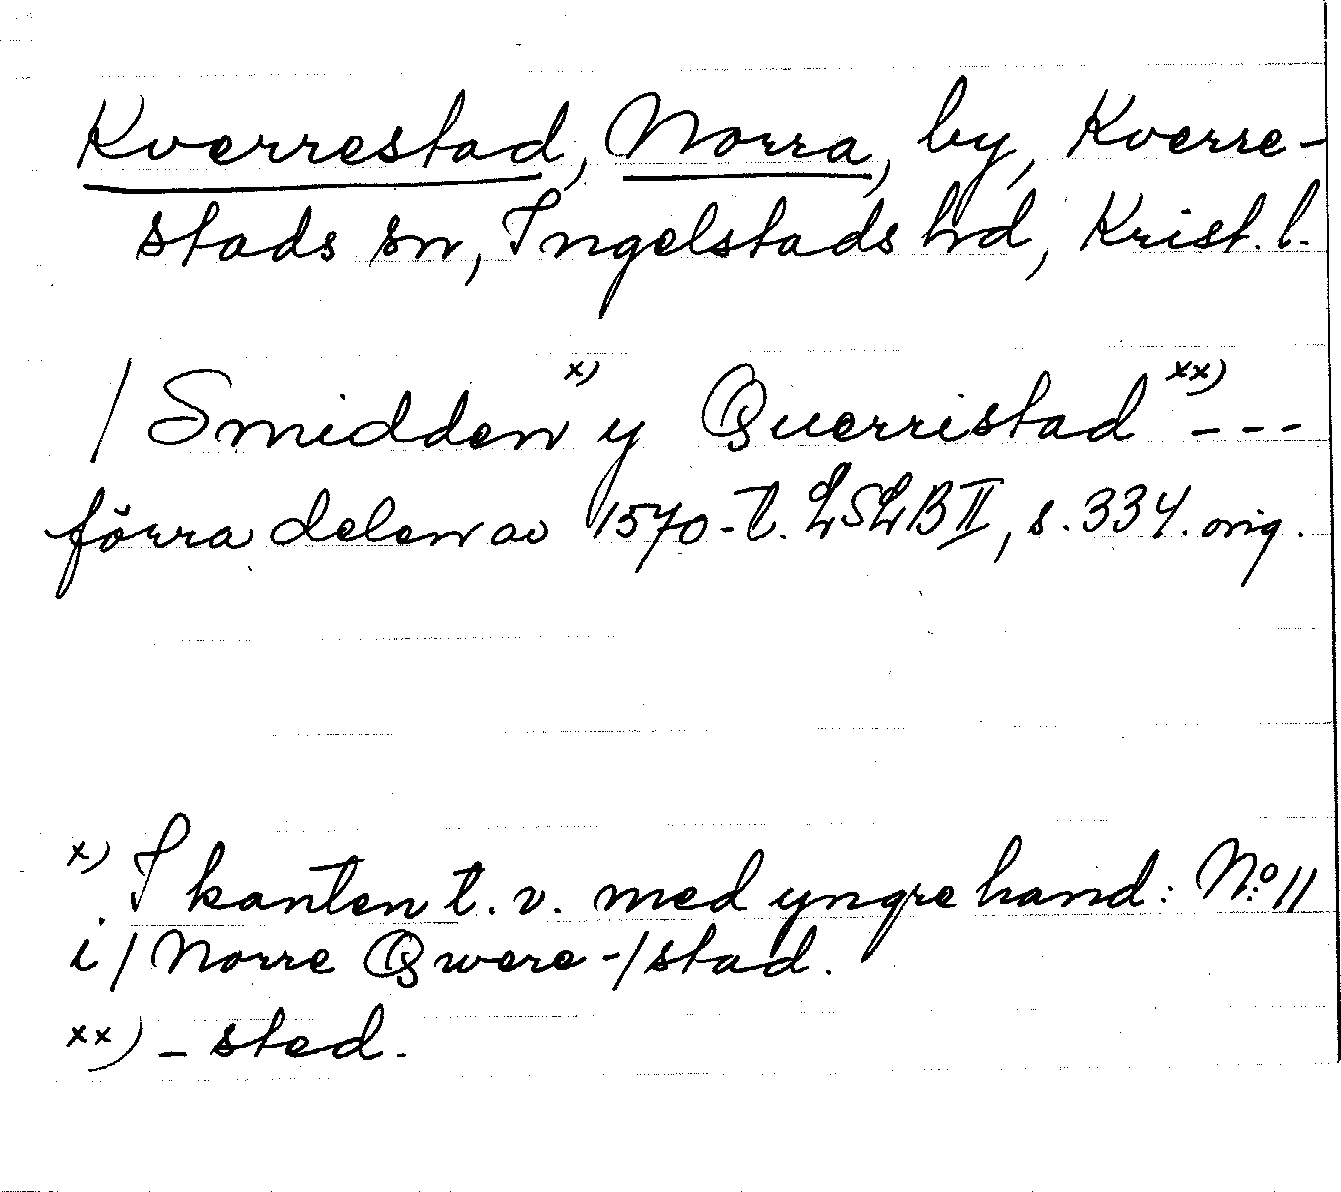 Kverrestad, Norra, by, Kverre-
stads sn, Ingelstads hd, Krist. l.
/ Smidden x) y Querristad xx) ---
förra delen av 1570-t. LSLB II, s. 334. orig.
x) I kanten t. v. med yngre hand: No: 11
i / Norre Qwere-/stad.
xx) - sted.